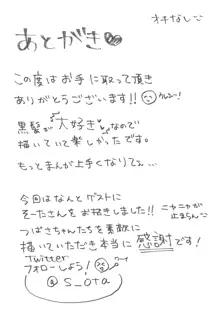 オチなし
あとがき
この度はお手に取って頂き
ありがとうございます!!
ウレシー!
黒髪が大好きなので
描いていて楽しかったです。
もっとまんが上手くなりてぇ…
今回はなんとゲストに
そーたさんをお招きしました!!
ニヤニヤが
止まらん
つばさちゃんたちを素敵に
描いていただき本当に感謝です!
Twitter
フォローしよう!
@s_0ta